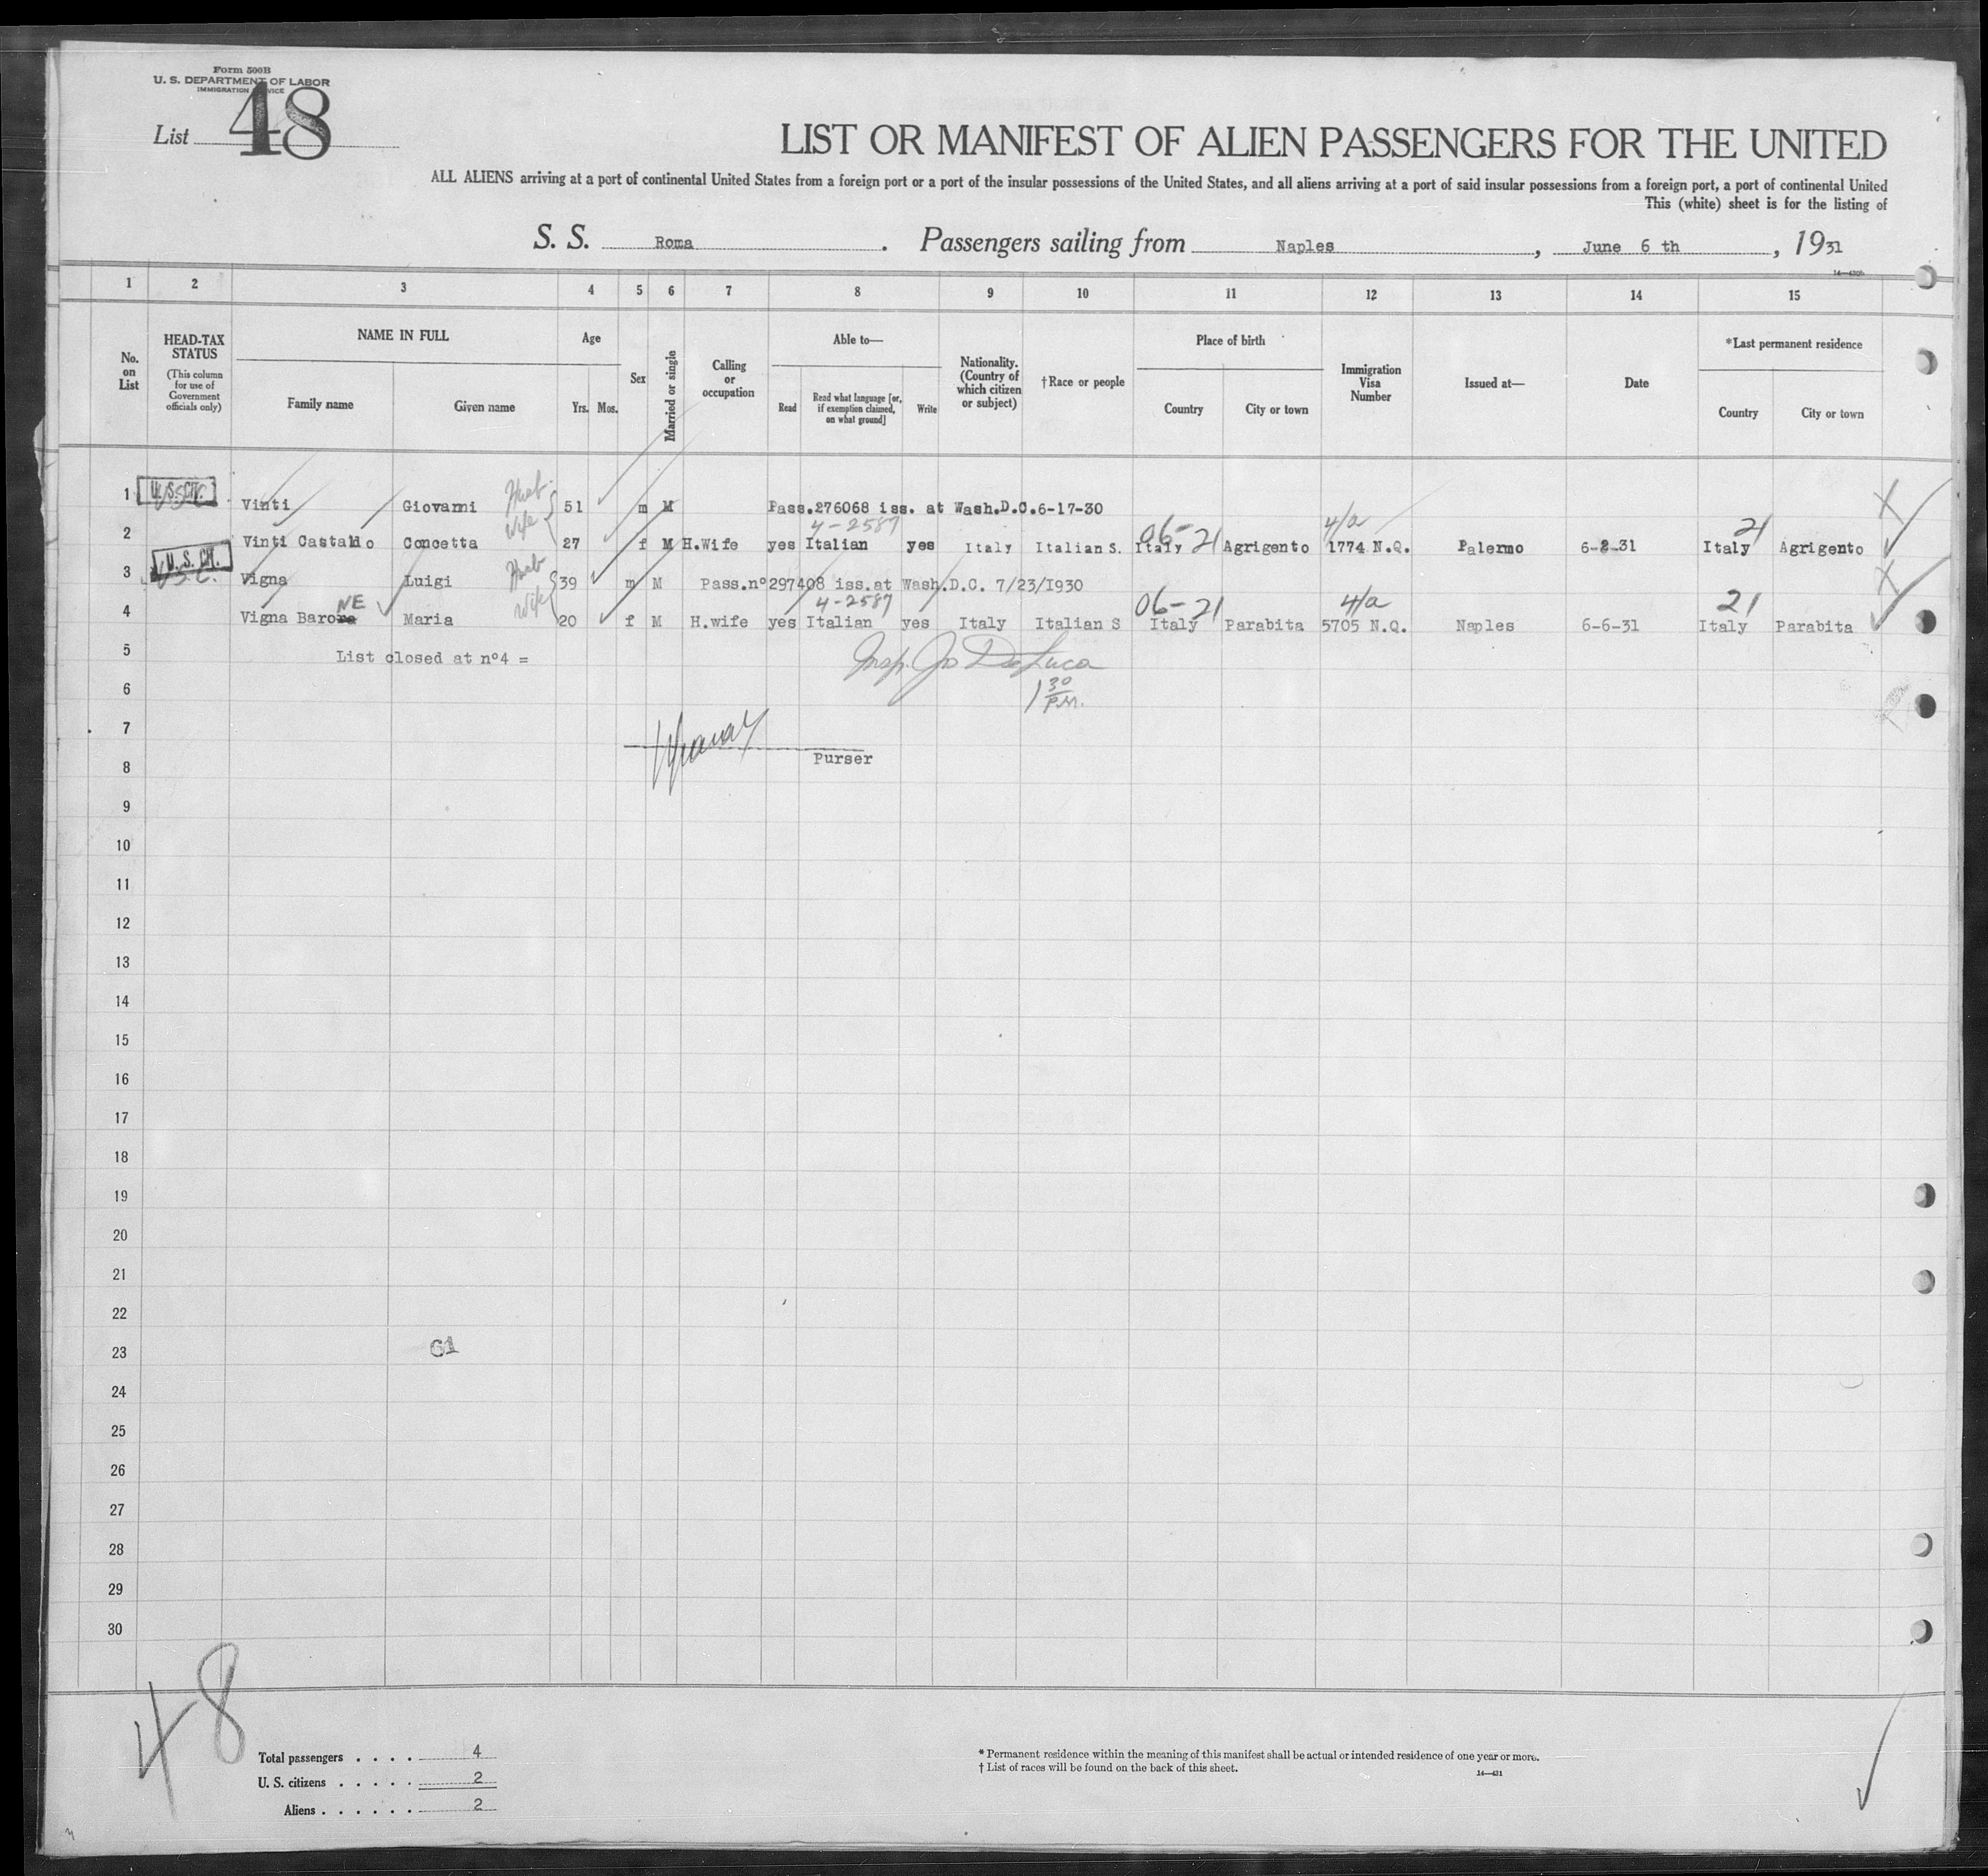 Form 500B
U. S. DEPARTMENT OF LABOR
IMMIGRATION SERVICE
List 48
LIST OR MANIFEST OF ALIEN PASSENGERS FOR THE UNITED
ALL ALIENS arriving at a port of continental United States from a foreign port or a port of the insular possessions of the United States, and all aliens arriving at a port of said insular possessions from a foreign port, a port of continental United
This (white) sheet is for the listing of
S. S. Roma. Passengers sailing from Naples, June 6 th, 1931
14—430b
1 2 3 4 5 6 7 8 9 10 11 12 13 14 15
No. on List
HEAD-TAX STATUS (This column for use of Government officials only)
NAME IN FULL
Family name Given name
Age
Yrs. Mos.
Sex
Married or single
Calling or occupation
Able to—
Read
Read what language [or, if exemption claimed, on what ground]
Write
Nationality. (Country of which citizen or subject)
†Race or people
Place of birth
Country City or town
Immigration Visa Number
Issued at—
Date
*Last permanent residence
Country City or town
1 U. S. CIT. Vinti Giovanni Husb. 51 m M Pass.276068 iss. at Wash.D.C.6-17-30
4-2587 06-21 4/a 21
2 Vinti Castaldo Concetta Wife 27 f M H.Wife yes Italian yes Italy Italian S. Italy Agrigento 1774 N.Q. Palermo 6-2-31 Italy Agrigento
3 U. S. CIT. U.S.C. Vigna Luigi Husb 39 m M Pass.nº297408 iss.at Wash.D.C. 7/23/1930
NE 4-2587 06-21 4/a 21
4 Vigna Barona Maria Wife 20 f M H.wife yes Italian yes Italy Italian S Italy Parabita 5705 N.Q. Naples 6-6-31 Italy Parabita
5 List closed at nº4 = Insp. Jo DeLuca
6 1 30 P.M.
7
8 Purser
9
10
11
12
13
14
15
16
17
18
19
20
21
22
23 61
24
25
26
27
28
29
30
48
Total passengers . . . . 4
U. S. citizens . . . . . 2
Aliens . . . . . . 2
* Permanent residence within the meaning of this manifest shall be actual or intended residence of one year or more.
† List of races will be found on the back of this sheet.
14—431